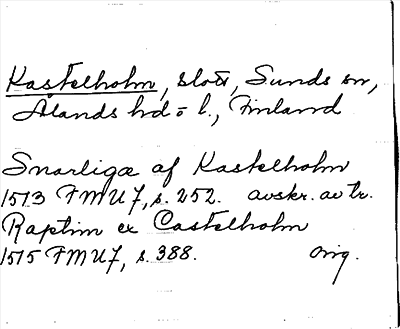 Kastelholm, slott, Sunds sn,
Ålands hd o l., Finland
Snarliga af Kastelholm
1513 FMU 7, s. 252. avskr. av tr.
Raptim ex Castelholm
1515 FMU 7, s. 388. orig.